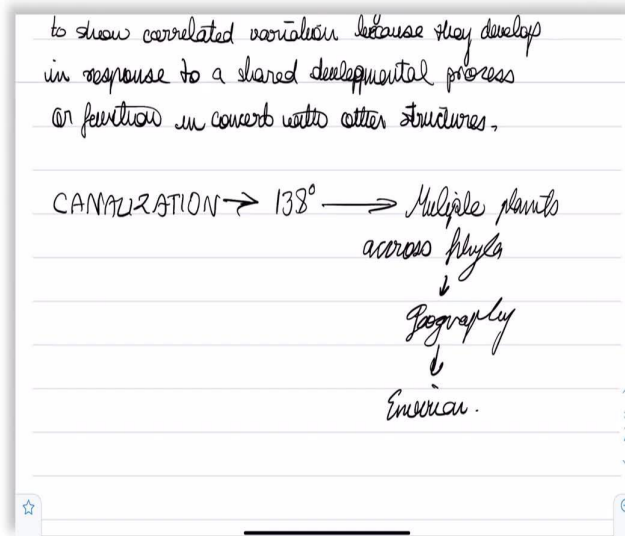 to show correlated variation because they develop
in response to a shared developmental process
or function in concert with other structures.
CANALIZATION → 138° → Muliple plants
accross phyla
↓
Geography
↓